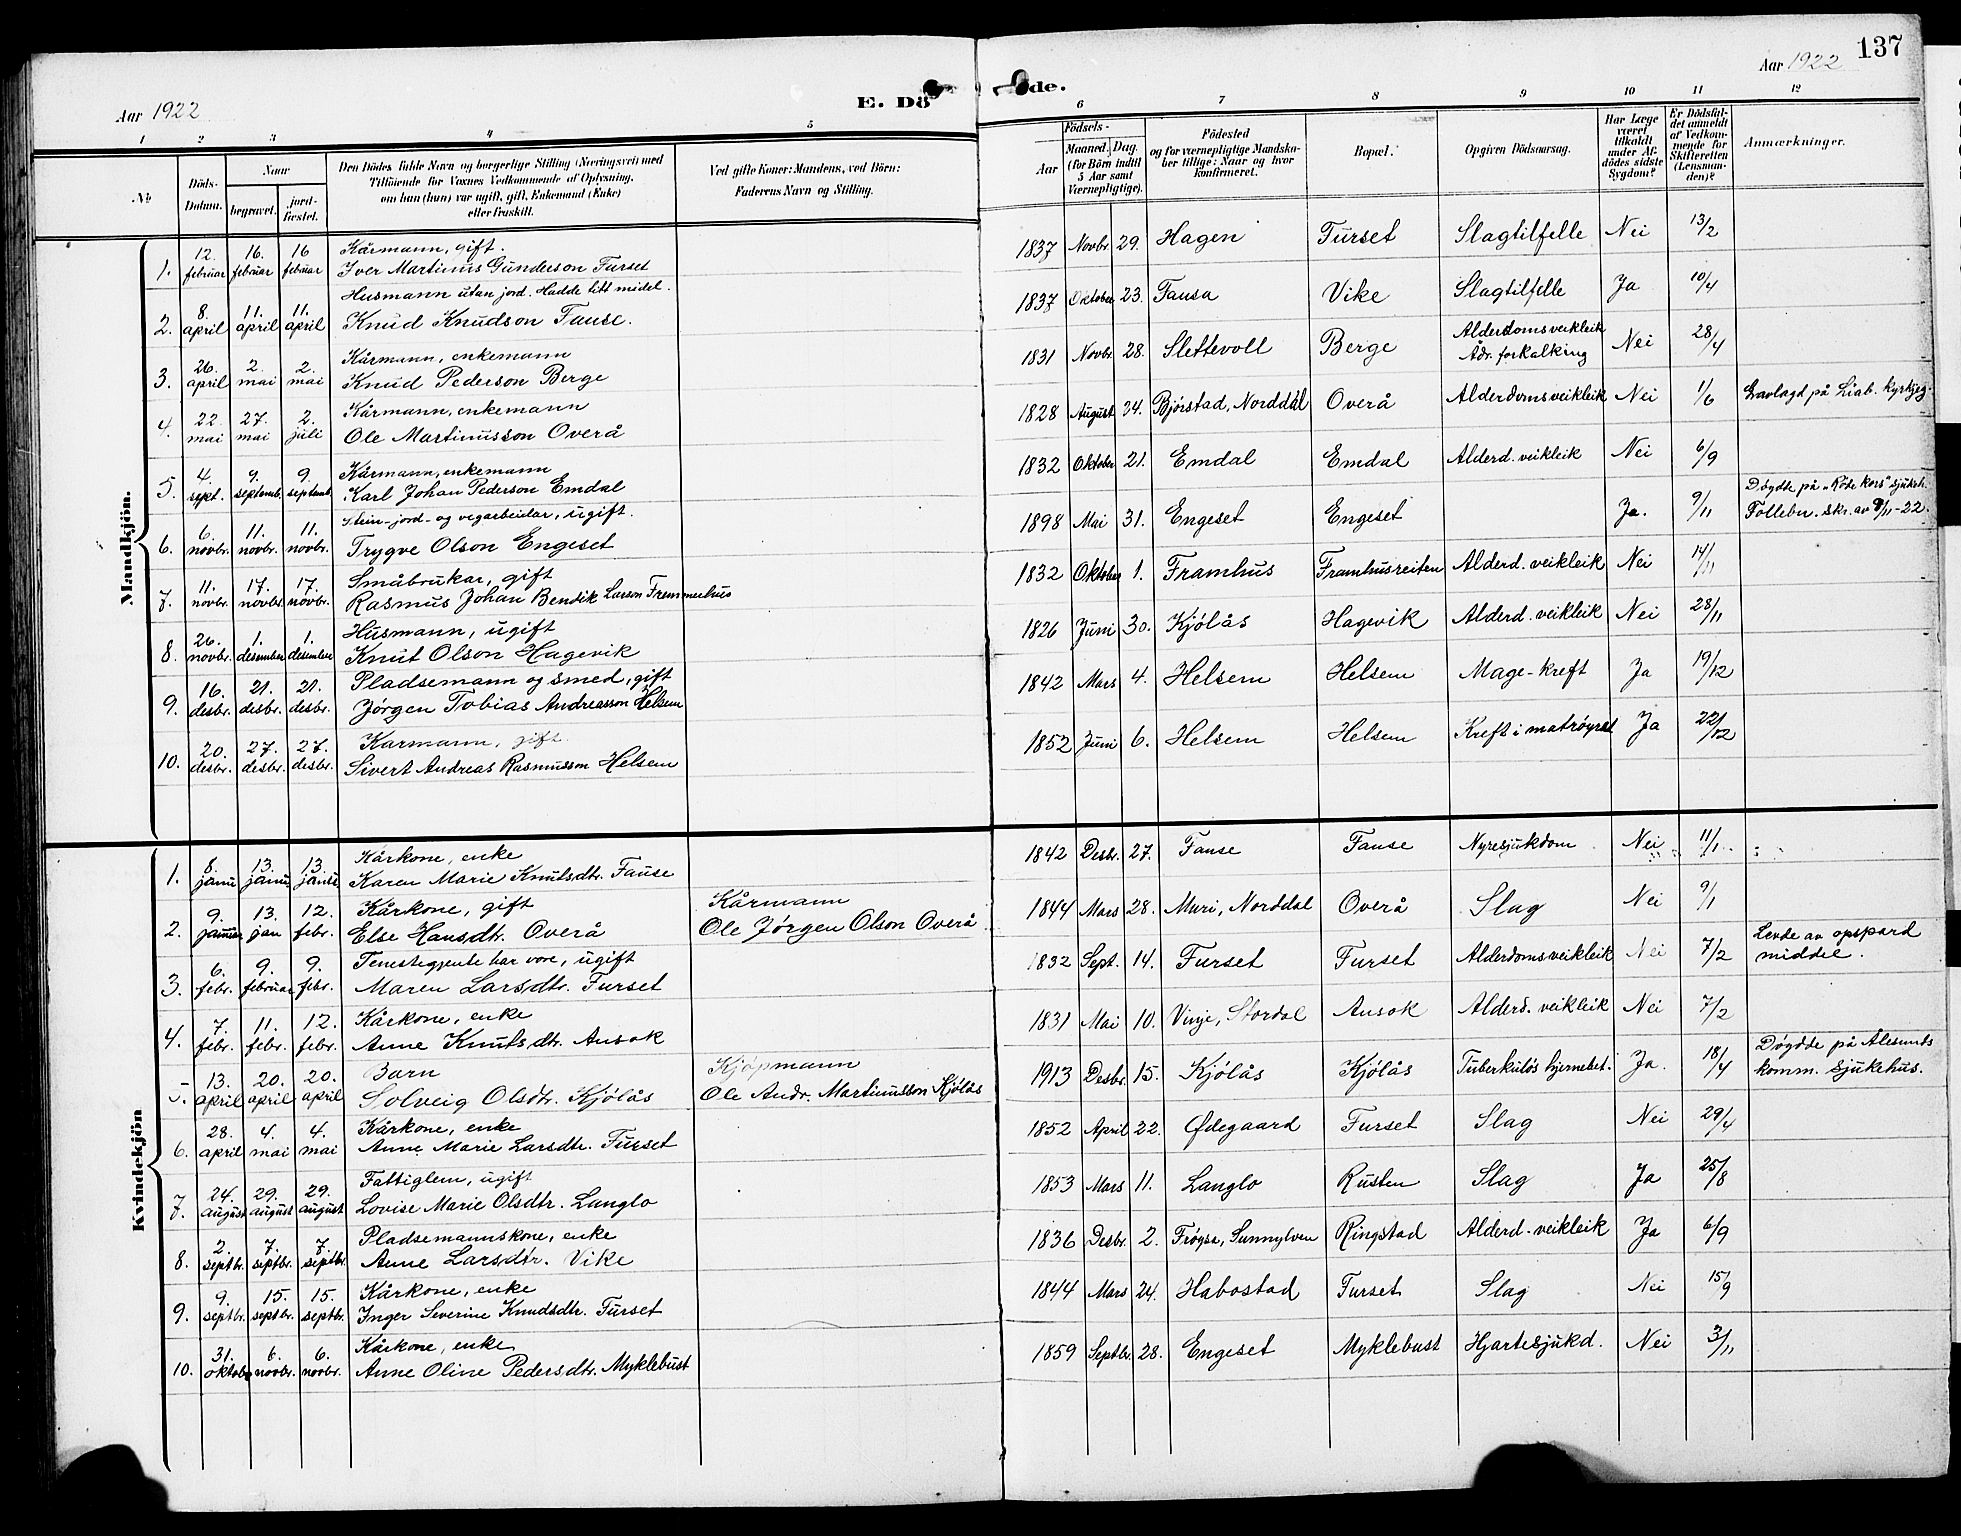 Aar 1922
E. Dö
de.
Aar 1922
137
1 2 3 4 5 6 7 8 9 10 11 12
No
Döds-Datum.
Naar
begravet.
jord-fæstet.
Den Dödes fulde Navn og borgerlige Stilling (Næringsvei) med
Tilföiende for Voxnes Vedkommende af Oplysning,
om han (hun) var ugift, gift, Enkemand (Enke)
eller fraskilt.
Ved gifte Koner: Mandens, ved Börn:
Faderens Navn og Stilling.
Födsels-
Aar
Maaned. Dag.
(for Börn indtil
5 Aar samt
Værnepligtige).
Födested
og for værnepligtige Mandska-
ber tillige: Naar og hvor
konfirmeret.
Bopæl.
Opgiven Dödsaarsag.
Har Læge
været
tilkaldt
under Af-
dödes sidste
Sygdom?
Er Dödsfal-
det anmeldt
af Vedkom-
mende for
Skifteretten
(Lensman-
den)?
Anmærkninger.
Mandkjön.
Kårmann, gift.
1. 12. februar 16. februar 16 februar Iver Martinus Gunderson Furset 1837 Novbr. 29. Hagen Furset Slagtilfelle Nei 13/2
Husmann utan jord. Hadde litt midel.
2. 8. april 11. april 11. april Knud Knudson Fause. 1837 Oktober 23. Fausa Vike Slagtilfelle Ja 10/4
Kårmann, enkemann
3. 26. april 2. mai 2. mai Knud Pederson Berge 1831 Novbr. 28. Slettevoll Berge Alderdomsveikleik Ådr. forkalking Nei 28/4
Kårmann, enkemann
4. 22. mai 27. mai 2. juli Ole Martinusson Overå 1828 August 24. Bjórstad, Norddål Overå Alderdomsveikleik Nei 1/6 Gravlagd på Liab. kyrkjeg.
Kårmann, enkemann
5. 4. sept. 9. septemb. 9. septemb. Karl Johan Pederson Emdal 1832 Oktober 21. Emdal Emdal Alderd. veikleik Nei 6/9
Stein-jord- og vegarbeidar, ugift.
6. 6. novbr. 11. novbr. 11. novbr. Trygve Olson Engeset 1898 Mai 31. Engeset Engeset Ja. 9/11 Dóydde på "Róde kors" sjukeh. Folleber. skr. av 9/11-22.
Småbrukar, gift
7. 11. novbr. 17. novbr. 17. novbr. Rasmus Johan Bendik Larson Fremmerhus 1832 Oktober 1. Framhus Framhusreiten Alderd. veikleik Nei 14/11
Husmann, ugift
8. 26. novbr. 1. desember 1. desember Knut Olson Hagevik 1826 Juni 30. Kjólås Hagevik Alderd. veikleik Nei 28/11
Pladsemann og smed, gift
9. 16. desbr. 21. desbr. 21. desbr. Jórgen Tobias Andreasson Helsem 1842 Mars 4. Helsem Helsem Mage-kreft Ja 19/12
Karmann, gift
10. 20. desbr. 27. desbr. 27. desbr. Sivert Andreas Rasmusson Helsem 1852 Juni 6. Helsem Helsem Kreft i matróyret Ja 22/12
Kvindekjön
Kårkone, enke
1. 8. janu 13. janu 13. janu Karen Marie Knutsdtr. Fause 1842 Desbr. 27. Fause Fause Nyresjukdom Nei 11/1
Kårkone, gift
2. 9. januar 13. jan 12. febr. Else Hansdtr. Overå Kårmann Ole Jórgen Olson Overå 1844 Mars 28. Muri, Norddal Overå Slag Nei 9/1
Tenestegjente har vore, ugift
3. 6. febr. 9. februar 9. febr. Maren Larsdtr. Furset 1832 Sept. 14. Furset Furset Alderdomsveikleik Nei 7/2 Levde av oppspard middel.
Kårkone, enke
4. 7. febr. 11. febr. 12. febr. Anne Knutsdtr. Ansok 1831 Mai 10. Vinje, Stordal Ansok Alderd. veikleik Nei 7/2
Barn
5. 13. april 20. april 20. april Solveig Olsdtr. Kjólås Kjópmann Ole Andr. Martinusson Kjólås 1913 Desbr. 15. Kjólås Kjólås Tuberkulós hjernebet. Ja. 18/4 Dóydde på Ålesunds komm. sjukehus.
Kårkone, enke
6. 28. april 4. mai 4. mai Anne Marie Larsdtr. Furset 1852 April 22. Ødegaard Furset Slag Nei 29/4
Fattiglem, ugift
7. 24. august 29. august 29. august Lovise Marie Olsdtr. Langlo 1853 Mars 11. Langlo Rusten Slag Ja 25/8
Pladsemannskone, enke
8. 2. septbr. 7. septbr. 7. septbr. Anne Larsdtr. Vike 1836 Desbr. 2. Fróysa, Sunnylven Ringstad Alderd. veikleik Ja 6/9
Kårkone, enke
9. 9. septbr. 15. septbr. 15. septbr. Inger Severine Knudsdtr. Furset 1844 Mars 24. Habostad Furset Slag Nei 15/9
Kårkone, enke
10. 31. oktober 6. novbr. 6. novbr. Anne Oline Pedersdtr. Myklebust 1859 Septbr. 28. Engeset Myklebust Hjartesjukd. Nei 3/11